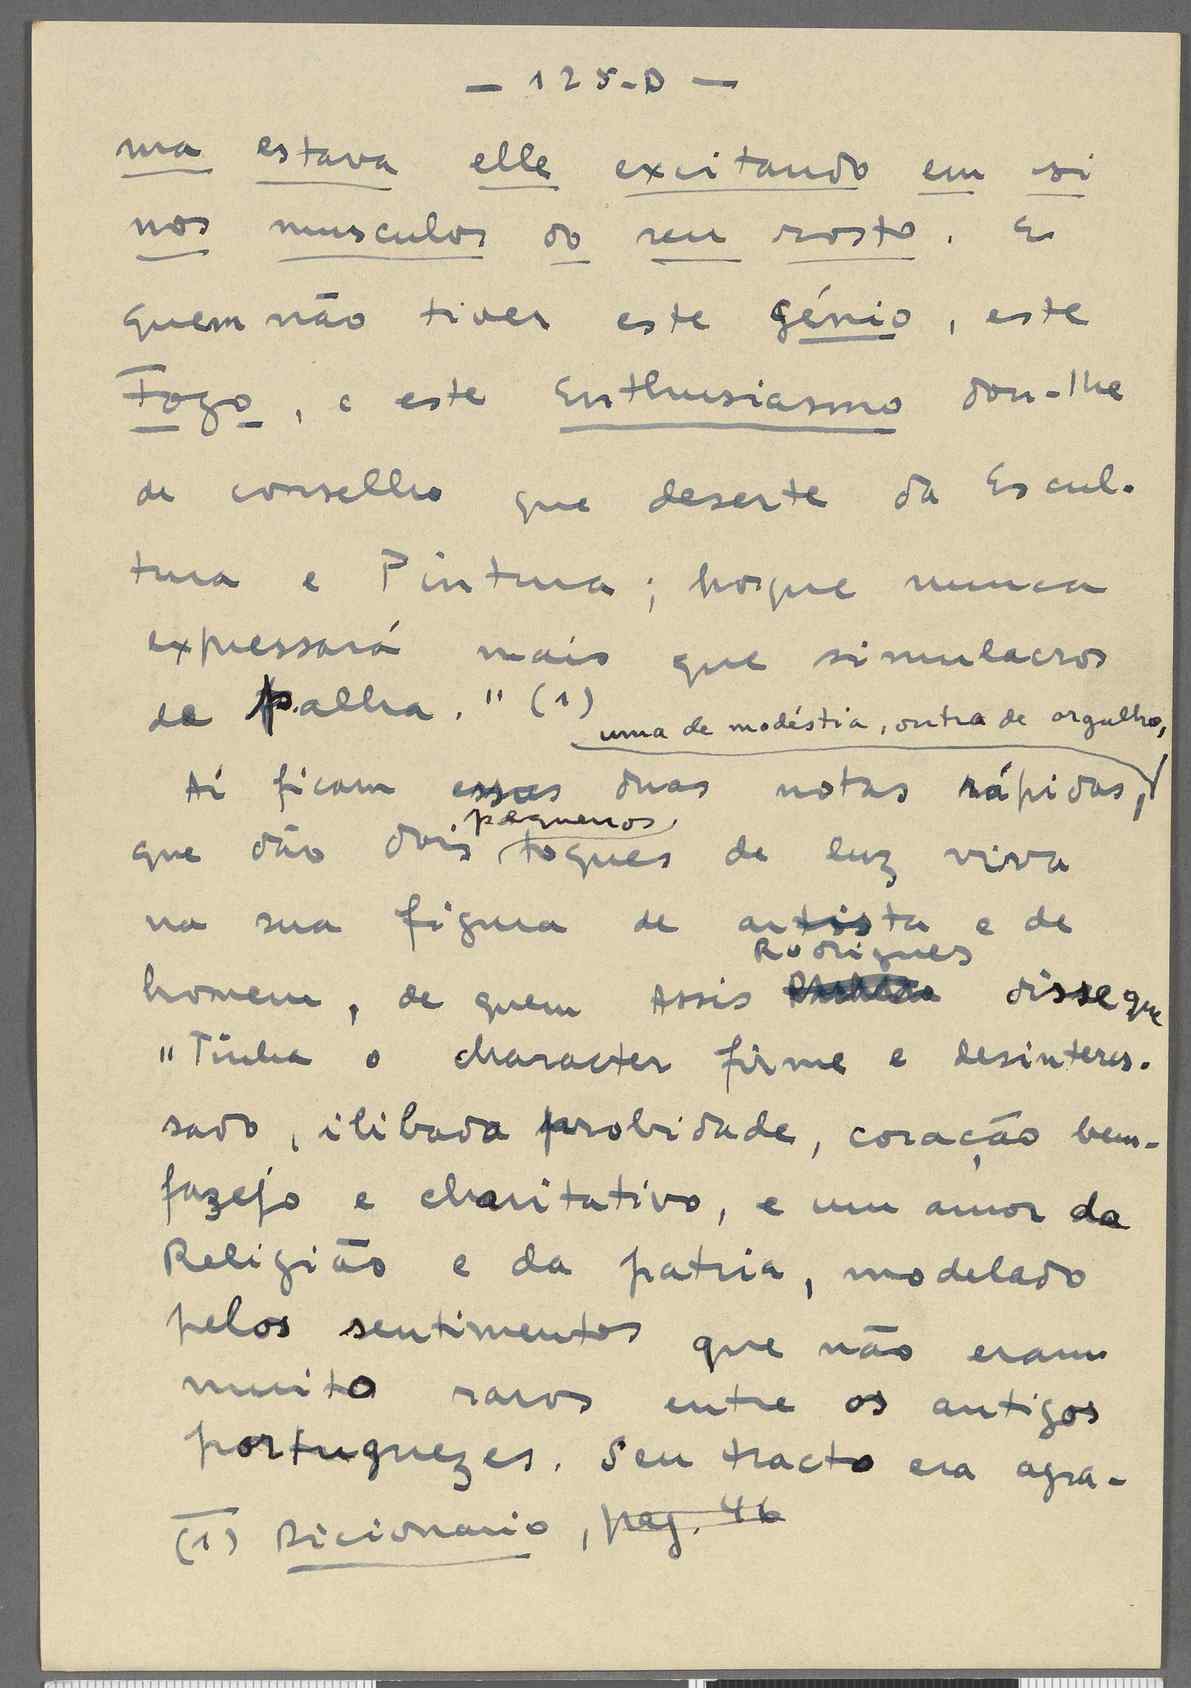 — 125-D —
ma estava elle excitando em si
nos musculos do seu rosto. E
quem não tiver este génio, este
Fogo, e este Enthusiasmo dou-lhe
de conselho que deserte da Escul-
tura e Pintura; porque nunca
expressará mais que simulacros
de palha." (1)
uma de modéstia, outra de orgulho,
Aí ficam essas duas notas rápidas,
pequenos
que dão dois toques de luz viva
na sua figura de artista e de
Rodrigues
homem, de quem Assis disse que
"Tinha o character firme e desinteres-
sado, ilibada probidade, coração bem-
fazejo e charitativo, e um amor da
Religião e da patria, modelado
pelos sentimentos que não eram
muito raros entre os antigos
portuguezes. Seu tracto era agra-
(1) Dicionario, pag. 46